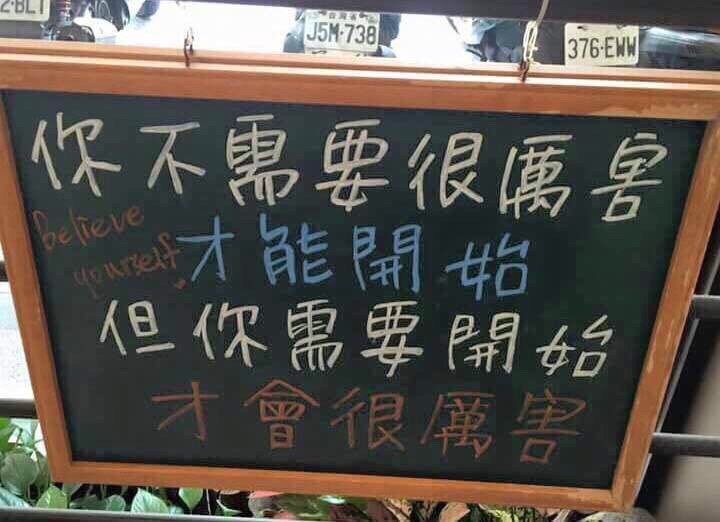 台灣省
J5M-738
376-EWW
你不需要很厲害
believe
yourself.
才能開始
但你需要開始
才會很厲害